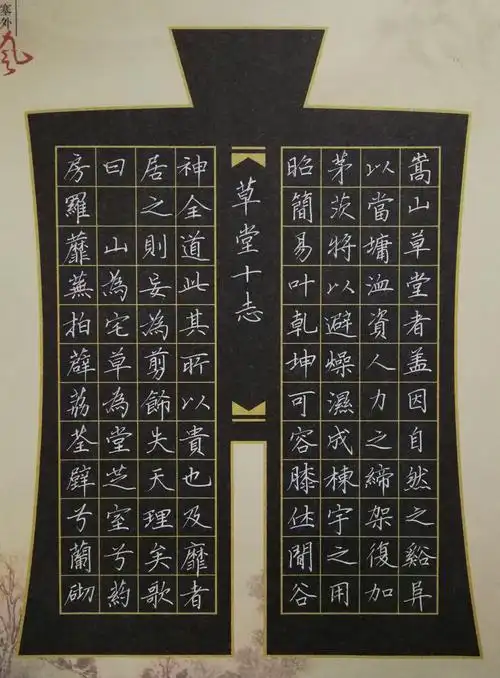 塞外
風
嵩山草堂者盖因自然之谿异
以當墉洫資人力之締架復加
茅茨將以避燥濕成棟宇之用
昭簡易叶乾坤可容膝休閒谷
草堂十志
神全道此其所以貴也及靡者
居之則妄為剪飾失天理矣歌
曰 山為宅草為堂芝室兮葯
房羅蘼蕪拍薜荔荃壁兮蘭砌